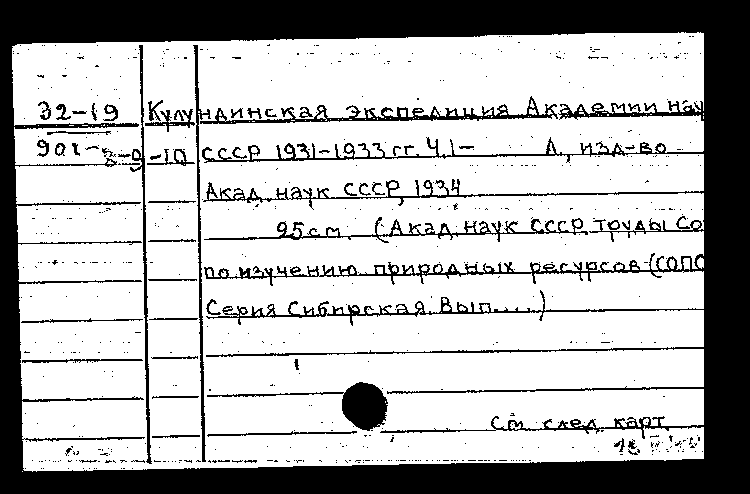 Э2-19 Кулундинская экспедиция Академии нау
901- -10 СССР 1931-1933 гг. Ч. 1- Л., изд-во
Акад. наук СССР, 1934
25 см. (Акад. наук СССР. Труды Со
по изучению природных ресурсов (СОПС
Серия Сибирская. Вып.....)
См. след. карт.